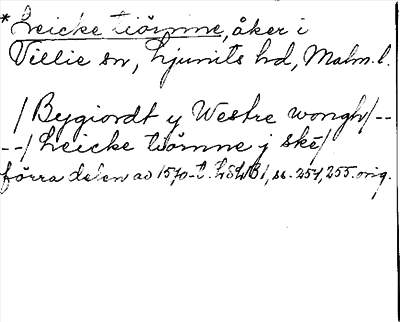 *Leicke tiörnne, åker i
Villie sn, Ljunits hd, Malm. l.
/Bygiordt y Westre wongh/--
--/Leicke tiörnne j skē/
förra delen av 1570-t. LSLB1, ss. 254, 255. orig.